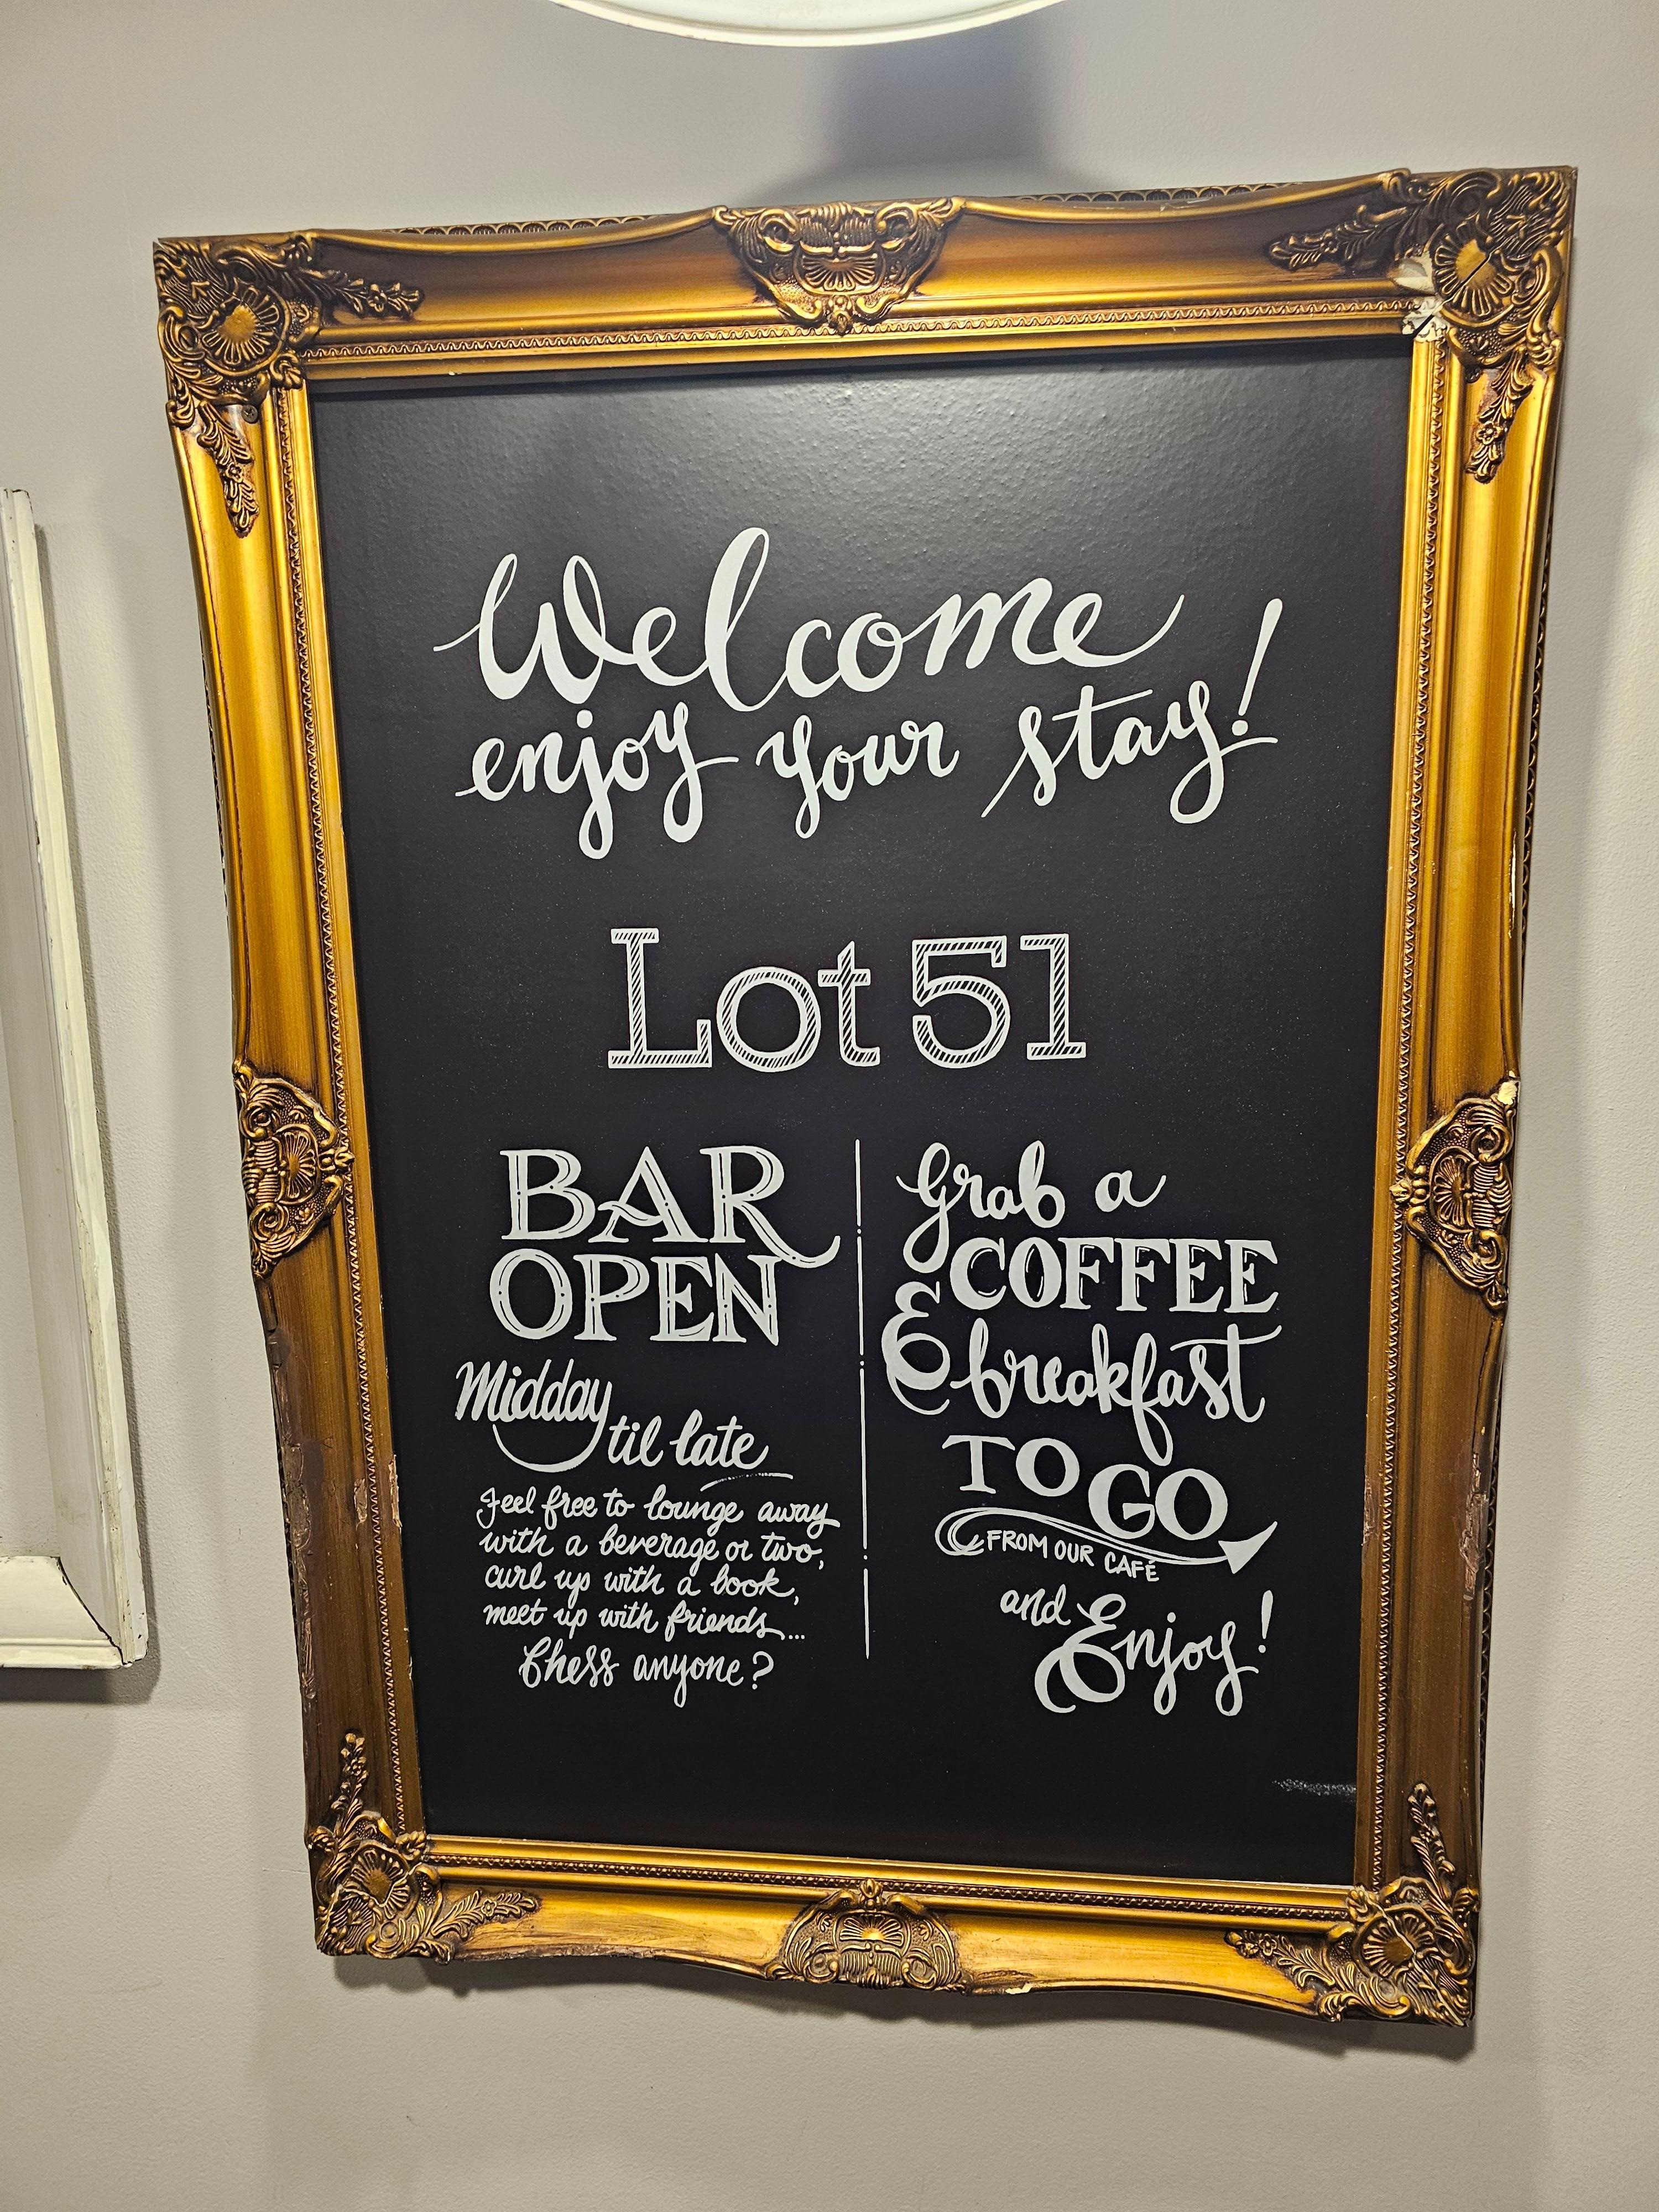 Welcome
enjoy your stay!
Lot 51
BAR
OPEN
Midday
til late
Feel free to lounge away
with a beverage or two,
curl up with a book,
meet up with friends...
Chess anyone?
Grab a
COFFEE
& breakfast
TO GO
FROM OUR CAFÉ
and Enjoy!